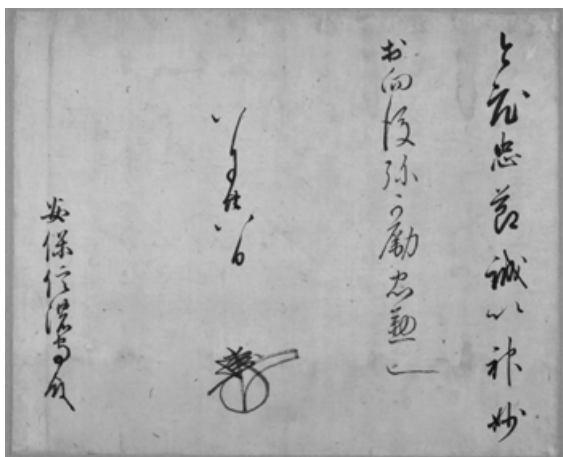 忠節誠以神妙
於向後弥可励忠
八月廿八日
安保信濃守殿